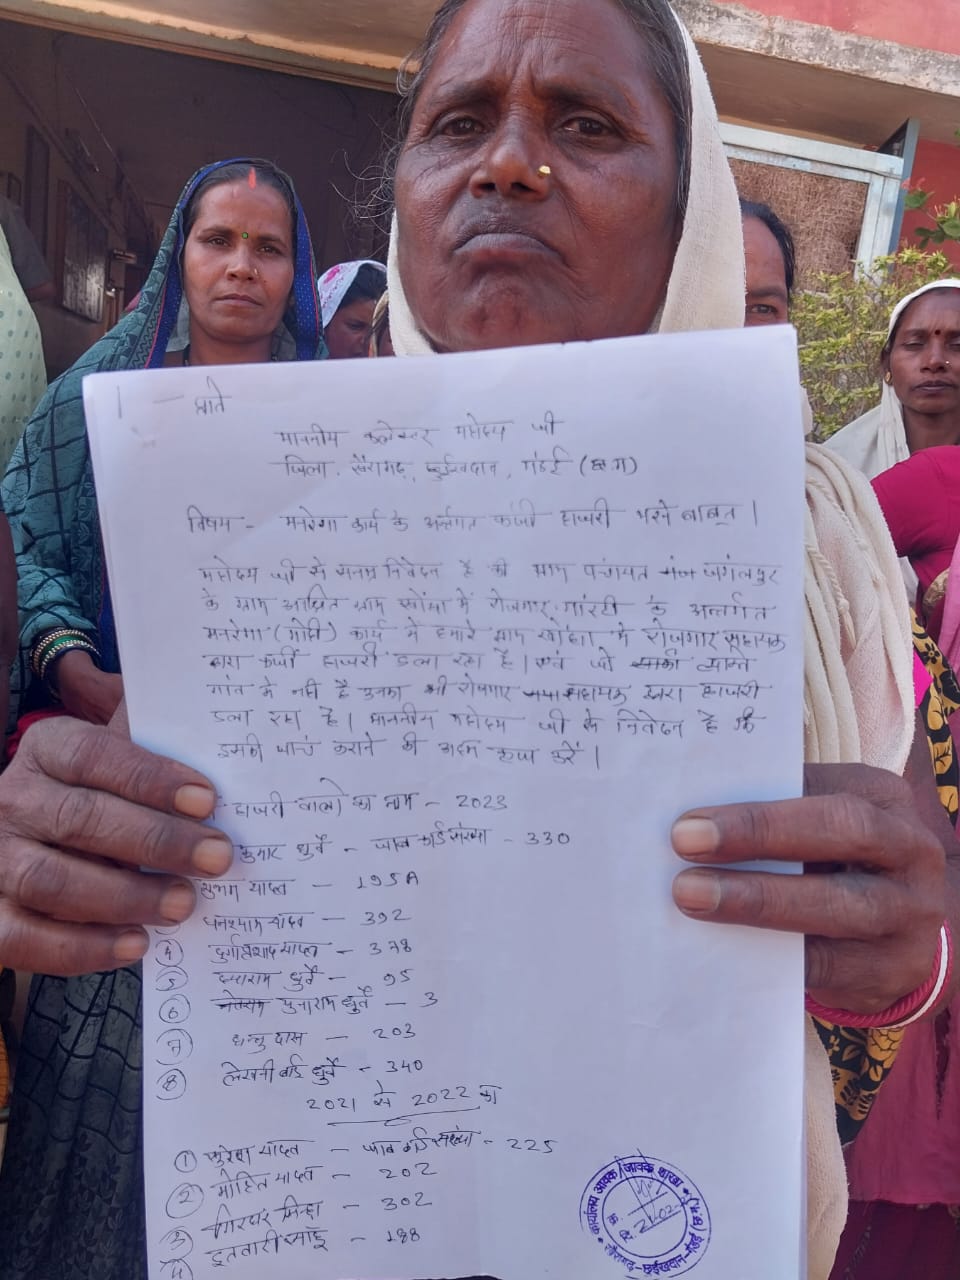 1 — प्रति
माननीय कलेक्टर महोदय जी
जिला. खैरागढ़, छुईखदान, गंडई (छ.ग)
विषय - मनरेगा कार्य के अर्न्तगत फर्जी हाजरी भरने बाबत् ।
महोदय जी से सनम्र निवेदन है की ग्राम पंचायत जंगलपुर
के ग्राम आश्रित ग्राम खोंघा में रोजगार गांरटी के अन्तर्गत
मनरेगा (गोदी) कार्य में हमारे ग्राम खोंघा में रोजगार सहायक
द्वारा फर्जी हाजरी डला रहा है। एवं जो व्यक्ति
गांव में नहीं है उनका भी रोजगार सहायक द्वारा हाजरी
डला रहा है। माननीय महोदय जी से निवेदन है कि
इसकी जांच कराने की कृपा करें।
हाजरी वालो का नाम - 2023
कुमार धुर्वे - जाब कार्ड संख्या - 330
शुभम यादव — 195A
घनश्याम यादव — 392
4 दुर्गाप्रसाद यादव - 378
5 दयाराम धुर्वे - 95
6 पुनाराम धुर्वे - 3
7 धन्नु दास - 203
8 लेखनी बाई धुर्वे - 340
2021 से 2022 का
1 सुरेखा यादव - जाब कार्ड संख्या - 225
2 मोहित यादव - 202
3 गिरधर सिन्हा - 302
4 इतवारी साहू - 188
कार्यालय आवक/जावक शाखा
खैरागढ़-छुईखदान-गंडई (छ.ग.)